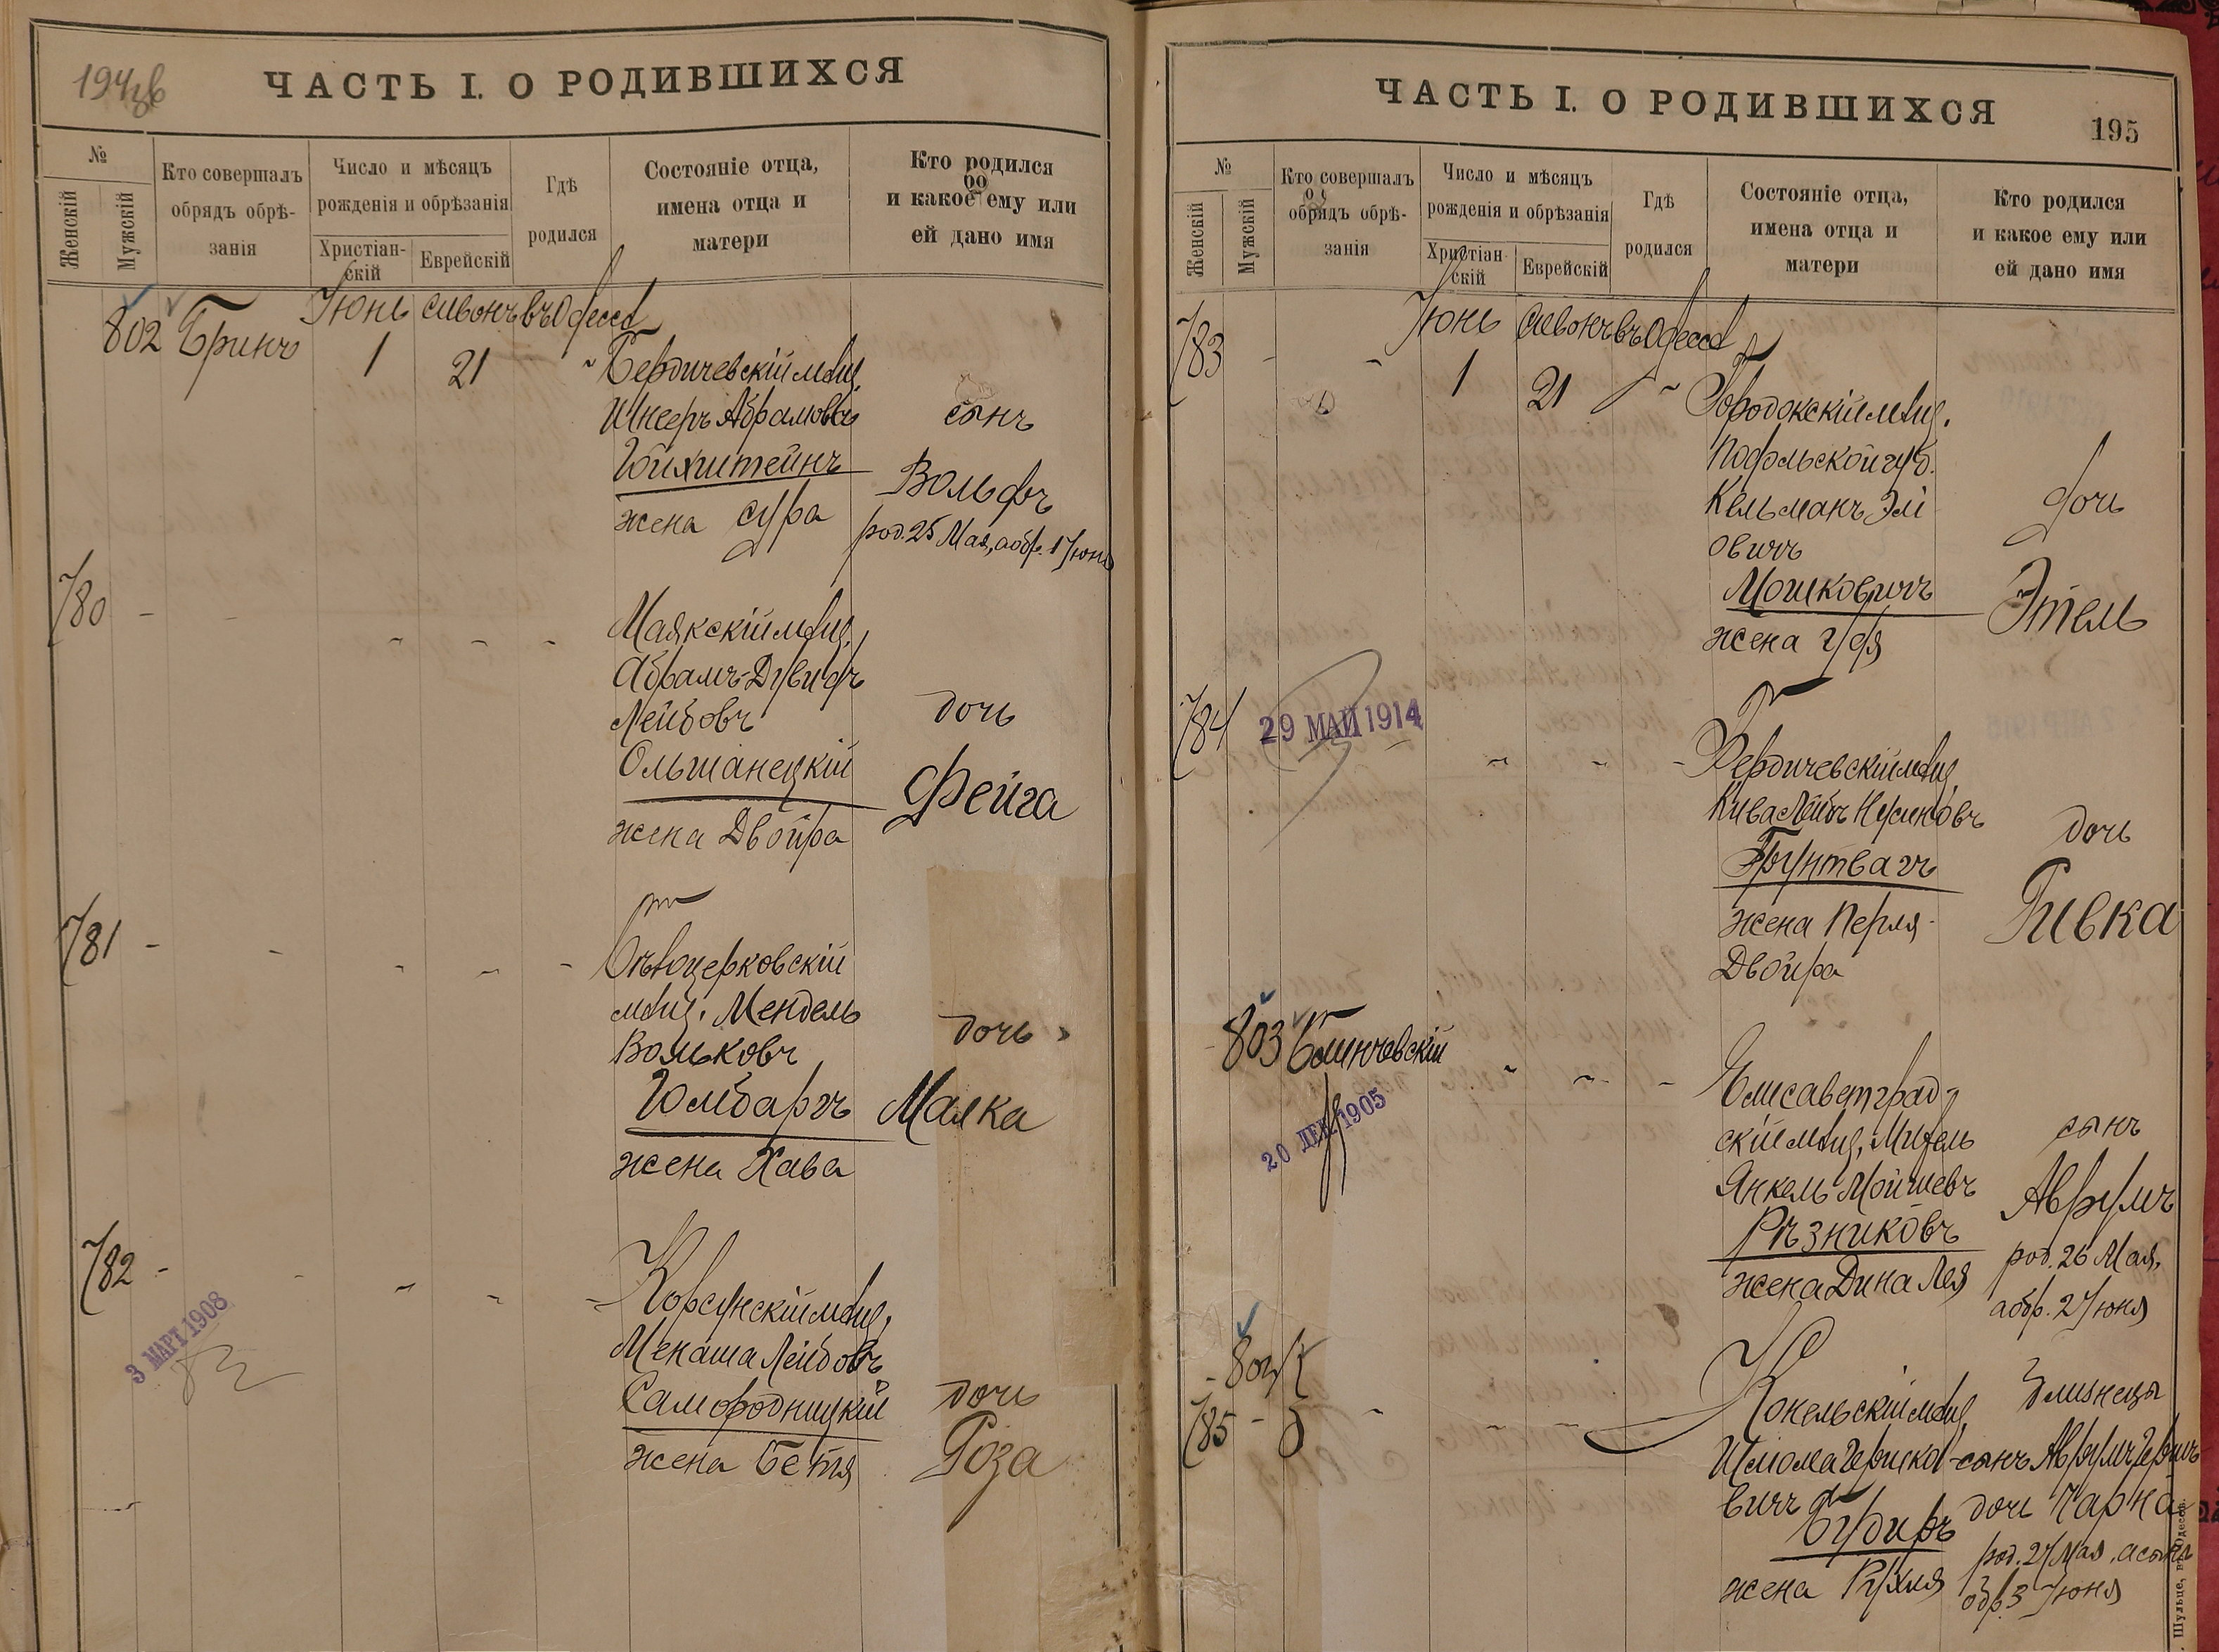 194 об
ЧАСТЬ I. О РОДИВШИХСЯ
№
Женскій
Мужскій
Кто совершалъ
обрядъ обрѣ-
занія
Число и мѣсяцъ
рожденія и обрѣзанія
Христіан-
скій
Еврейскій
Гдѣ
родился
Состояніе отца,
имена отца и
матери
Кто родился
и какое ему или
ей дано имя
Іюнь сивонъ въ Одессѣ
802 Бринъ 1 21 Бердичевскій мѣщ.
Шнееръ Абрамовъ сынъ
Гойхштейнъ Вольфъ
жена Сура род. 25 Мая, а обр. 1 Іюня
780 - Маякскій мѣщ.
Абрамъ-Дувидъ
Лейбовъ дочь
Ольшанецкій Фейга
жена Двойра
781 - Бѣлоцерковскій
мѣщ. Мендель дочь
Вольковъ
Голбаргъ Малка
жена Хава
782 - Корсунскій мѣщ.
3 МАРТ 1908
Менаша Лейбовъ
Самородницкій дочь
жена Бетя Роза
ЧАСТЬ I. О РОДИВШИХСЯ
195
№
Женскій
Мужскій
Кто совершалъ
обрядъ обрѣ-
занія
Число и мѣсяцъ
рожденія и обрѣзанія
Христіан-
скій
Еврейскій
Гдѣ
родился
Состояніе отца,
имена отца и
матери
Кто родился
и какое ему или
ей дано имя
Іюнь сивонъ въ Одессѣ
783 - 1 21 Городокскій мѣщ.
Подольской губ.
Кельманъ Элі дочь
овичъ
Мошковичъ Этель
жена
784 29 МАЙ 1914
Бердичевскій мѣщ
Кива Лейбъ Нусиновъ дочь
Грунтвагъ
жена Перля- Ривка
Двойра
803 Блинчевскій
20 ДЕК 1905
Елисаветград-
скій мѣщ. сынъ
Янкель Мойшевъ Аврумъ
Рѣзниковъ род. 26 Мая,
жена Дина Лея а обр. 2 Іюня
804
785 - Конельскій мѣщ. Близнецы
Шлома Гершко- сынъ Аврумъ Гершъ
вичъ дочь Чарна
род. 27 Мая, а сынъ
жена Рухля обр. 3 Іюня
Шульце, въ Одессѣ.